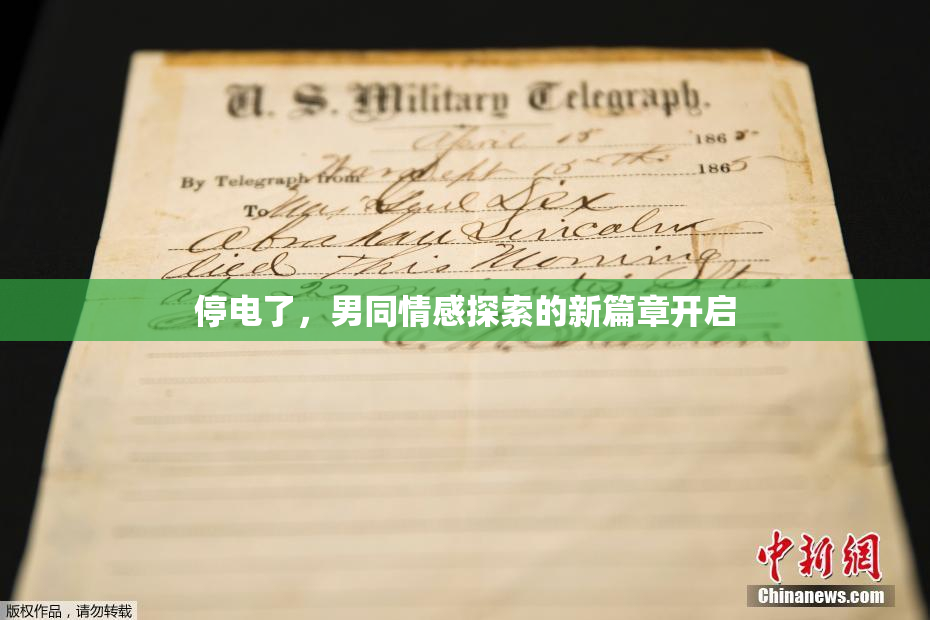 U. S. Military Telegraph.
April 15 1865.
By Telegraph from War Dept 15th 1865
To Maj Genl Dix
Abraham Lincoln
died This Morning
at 22 minutes after
停电了，男同情感探索的新篇章开启
E. M. Stanton
中新网
Chinanews.com
版权作品，请勿转载